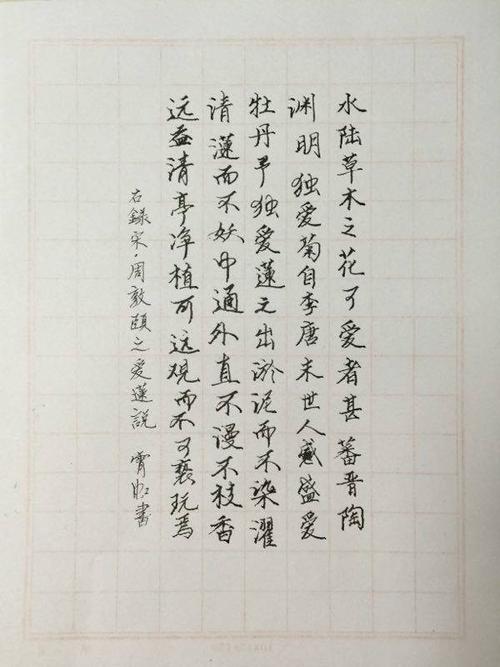 水陆草木之花可爱者甚蕃晋陶
渊明独爱菊自李唐来世人感盛爱
牡丹予独爱蓮之出淤泥而不染濯
清漣而不妖中通外直不漫不枝香
远益清亭净植可远观而不可亵玩焉
右錄宋·周敦颐之爱蓮説 霄虹書